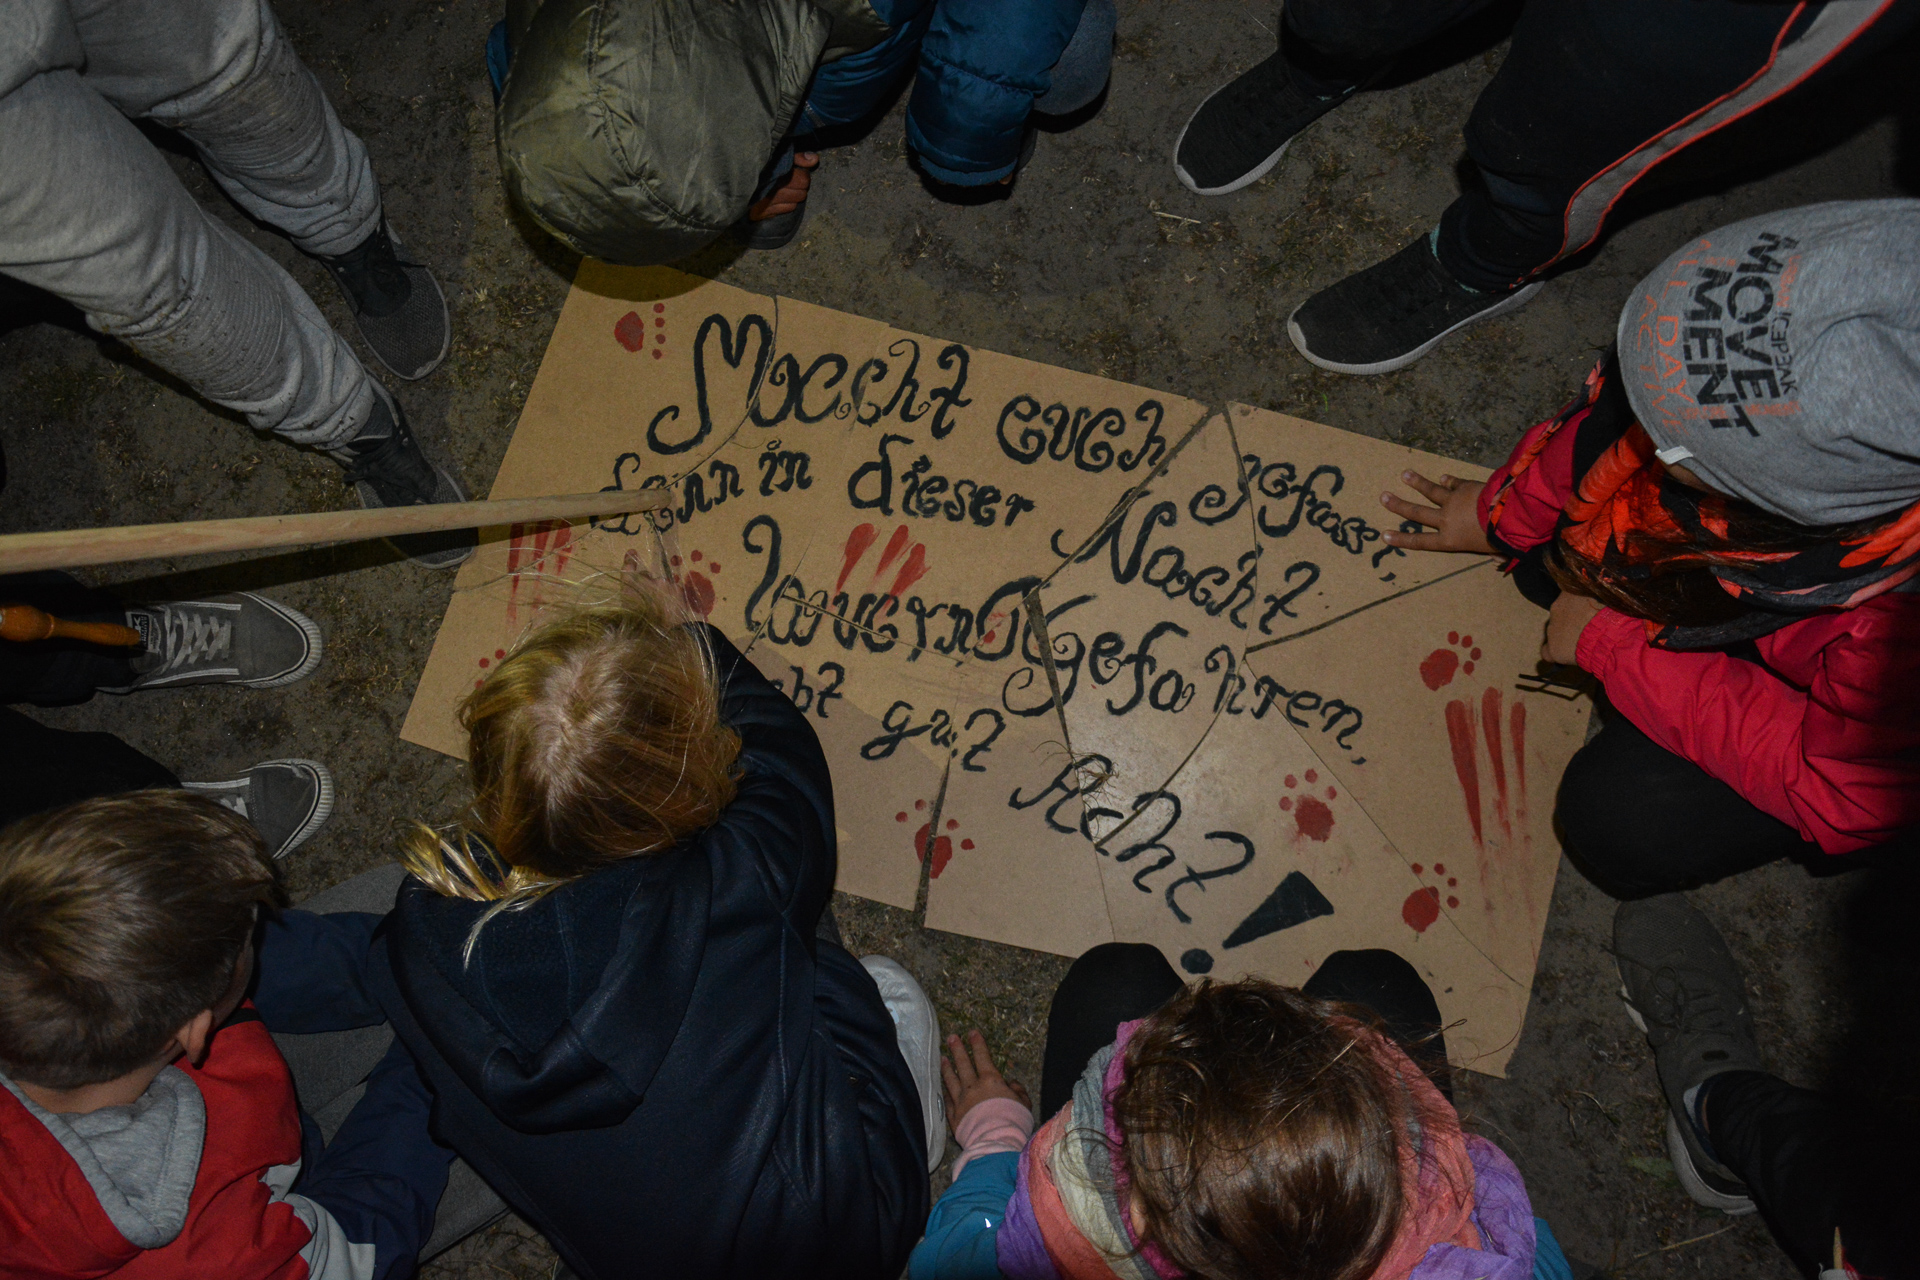 Macht euch gefasst,
denn in dieser Nacht
lauern Gefahren,
gut Acht!
MOVE
MENT
ALL DAY